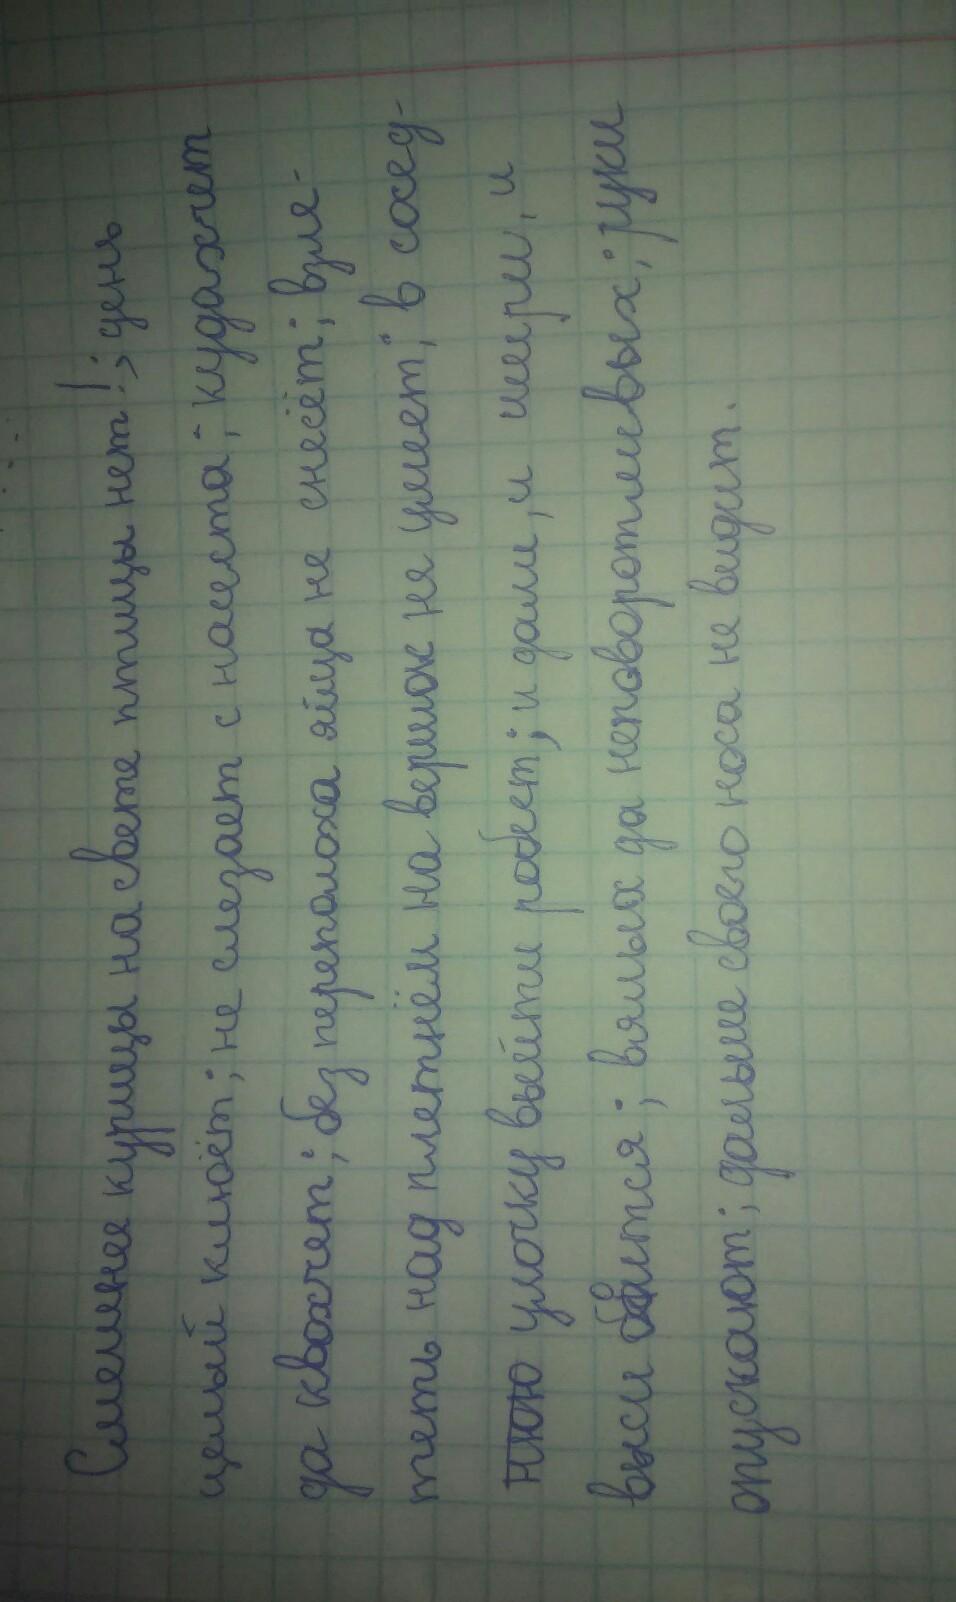 Смешнее курицы на свете птицы нет!; день
целый клюёт; не слезает с насеста; кудахчет
да квохчет; без переполоха яйца не снесёт; взле-
теть над плетнём на вершок не умеет; в сосед-
нюю улочку выйти робеет; и дали, и шири, и
выси боится; вялых да неповоротливых; руки
опускают; дальше своего носа не видит.